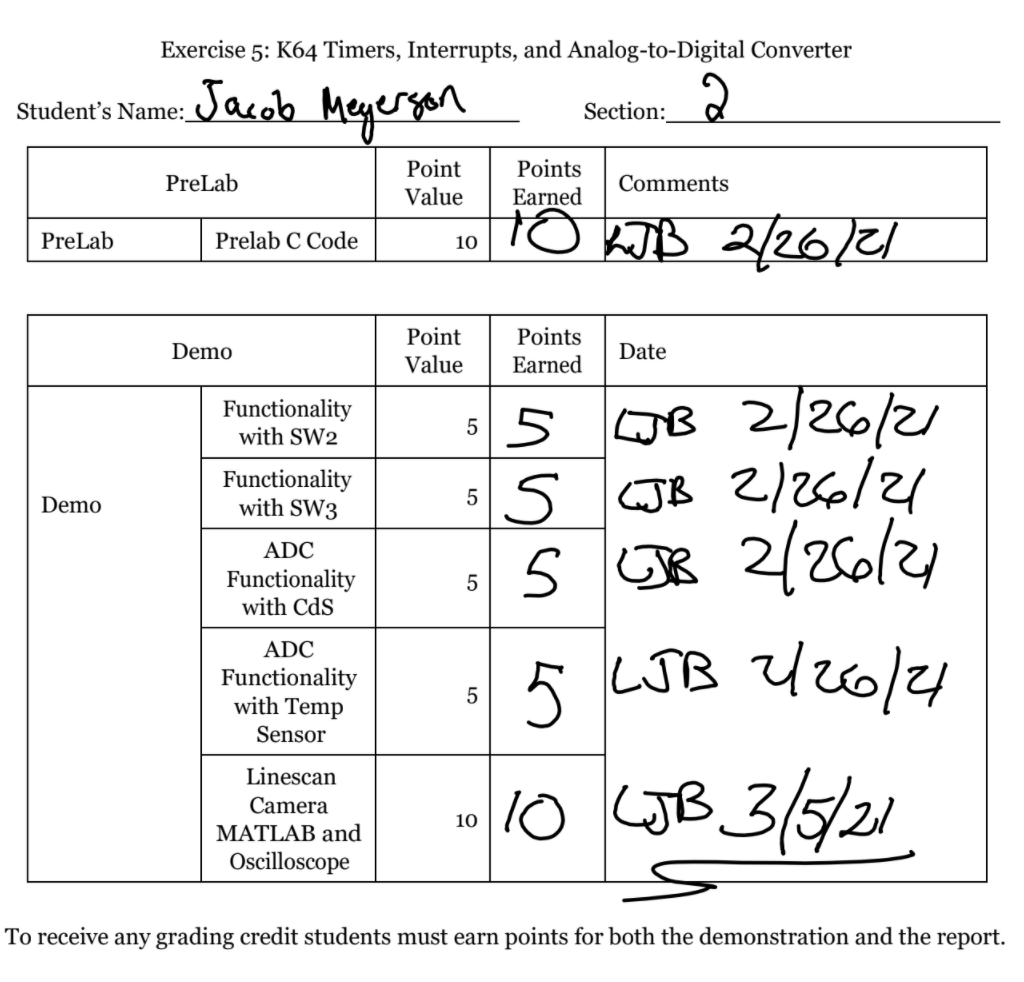 Exercise 5: K64 Timers, Interrupts, and Analog-to-Digital Converter
Student's Name: Jacob Meyerson Section: 2
PreLab Point Value Points Earned Comments
PreLab Prelab C Code 10 10 LJB 2/26/21
Demo Point Value Points Earned Date
Demo
Functionality with SW2 5 5 LJB 2/26/21
Functionality with SW3 5 5 LJB 2/26/21
ADC Functionality with CdS 5 5 LJB 2/26/21
ADC Functionality with Temp Sensor 5 5 LJB 2/26/21
Linescan Camera MATLAB and Oscilloscope 10 10 LJB 3/5/21
To receive any grading credit students must earn points for both the demonstration and the report.